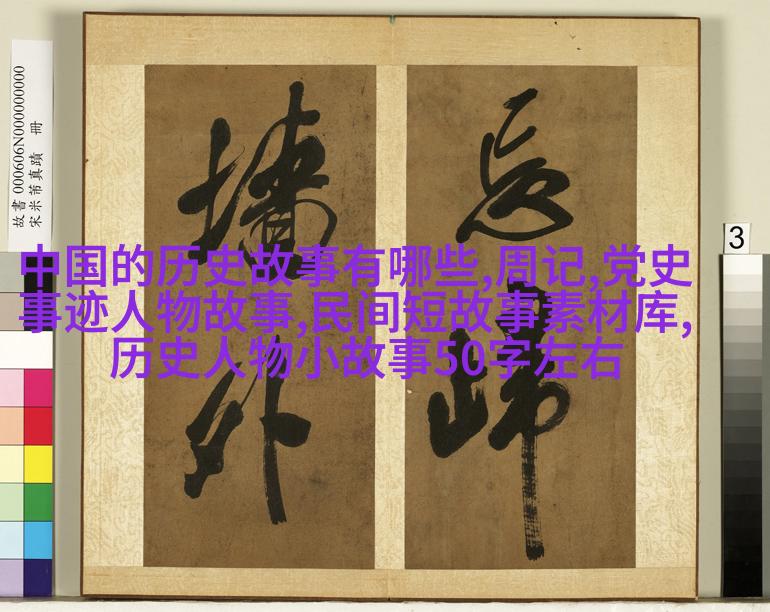 故書 000606N000000000
宋米芾真蹟 冊
忘歸
墻外
3
中国的历史故事有哪些,周记,党史
事迹人物故事,民间短故事素材库,
历史人物小故事50字左右